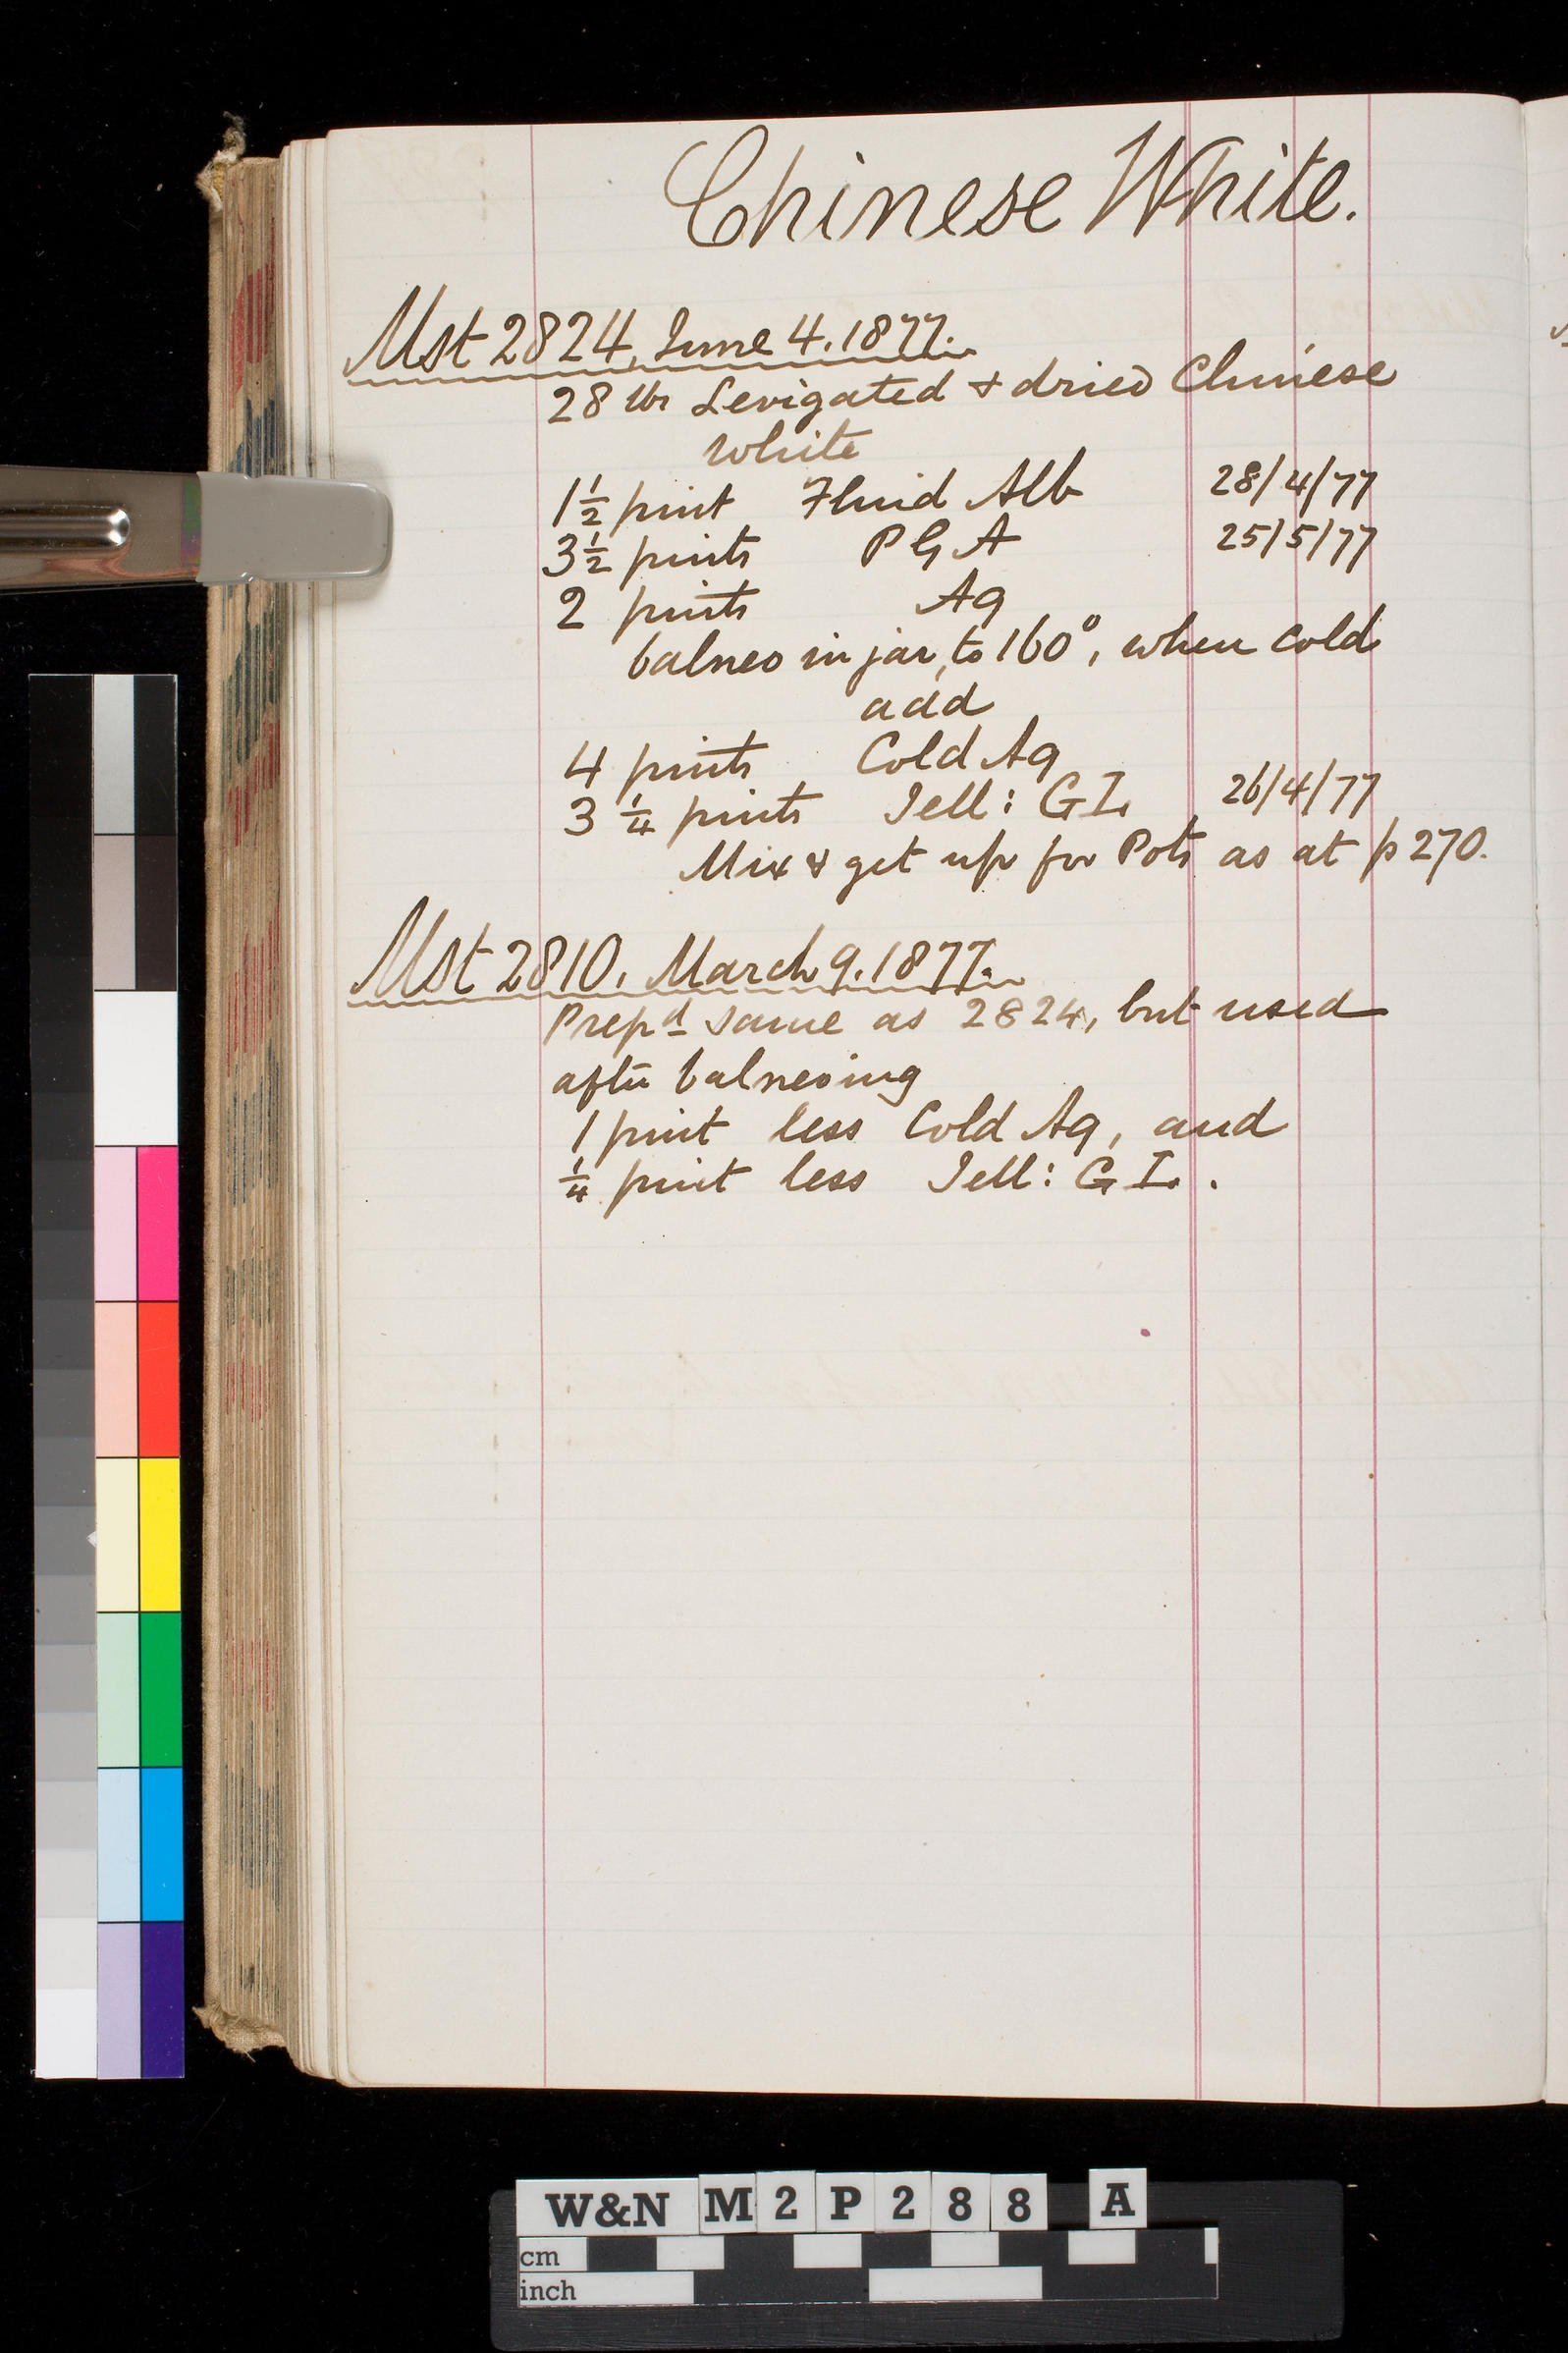 Chinese White.
Mst 2824, June 4. 1877.
28 lbs Levigated & dried Chinese
White
1½ pint Fluid Alb 28/4/77
3½ pints P G A 25/5/77
2 pints Aq
balneo in jar, to 160°, when cold
add
4 pints Cold Aq
3 ¼ pints Jell: G I. 26/4/77
Mix & get up for Pots as at p 270.
Mst 2810. March 9. 1877.
Prepd same as 2824, but used
after balneoing
1 pint less Cold Aq, and
¼ pint less Jell: G I.
W&N M 2 P 2 8 8 A
cm
inch